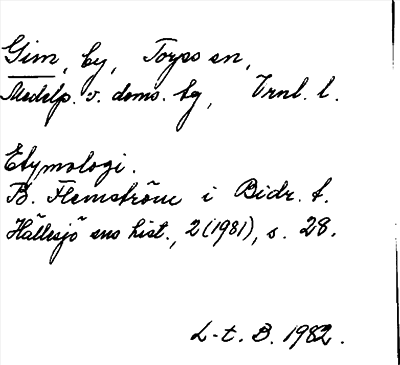 Gim, by, Torps sn,
Medelp. v. doms. bg, Vrnl. l.
Etymologi.
B. Flemström i Bidr. t.
Hällesjö sns hist., 2 (1981), s. 28.
L-t. B. 1982.